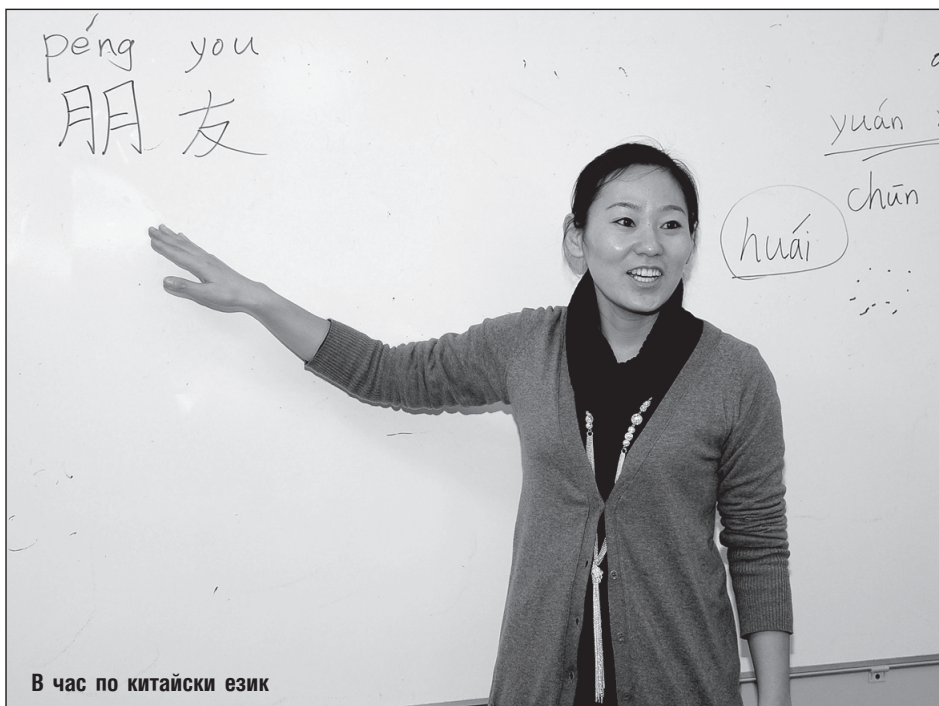 péng you
朋友
yuán
chūn
huái
В час по китайски език